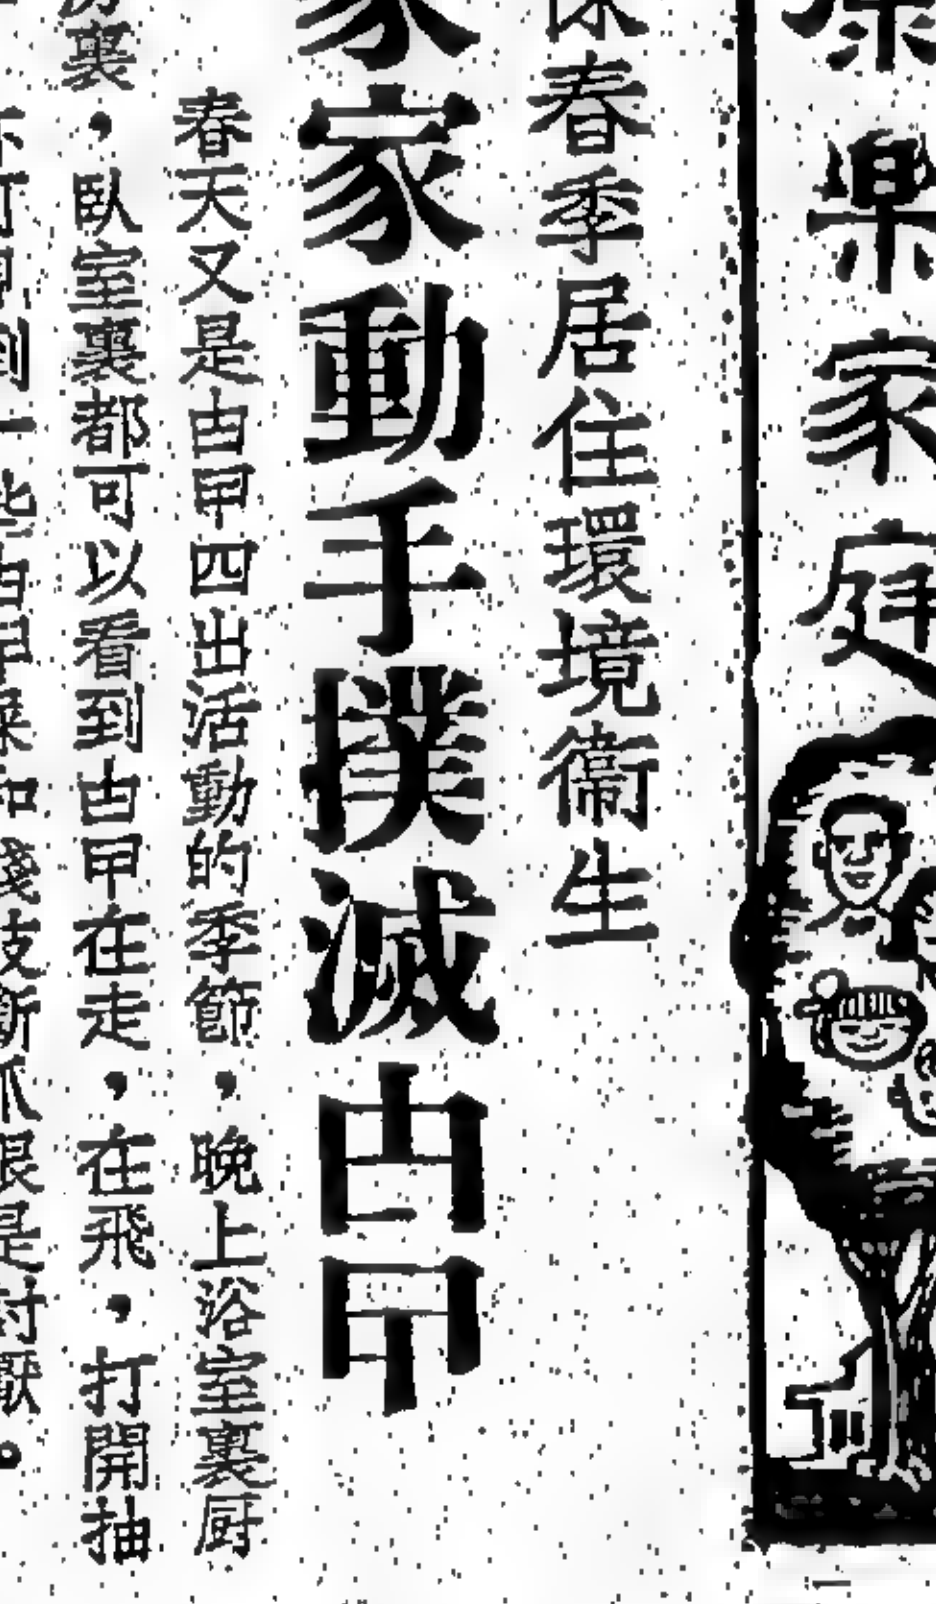 康楽家庭
保春季居住環境衞生
家家動手撲滅甴曱
春天又是甴曱四出活動的季節，晚上浴室裏厨
房裏，臥室裏都可以看到甴曱在走，在飛，打開抽
到一些甴曱屎和殘肢斷爪很是討厭。